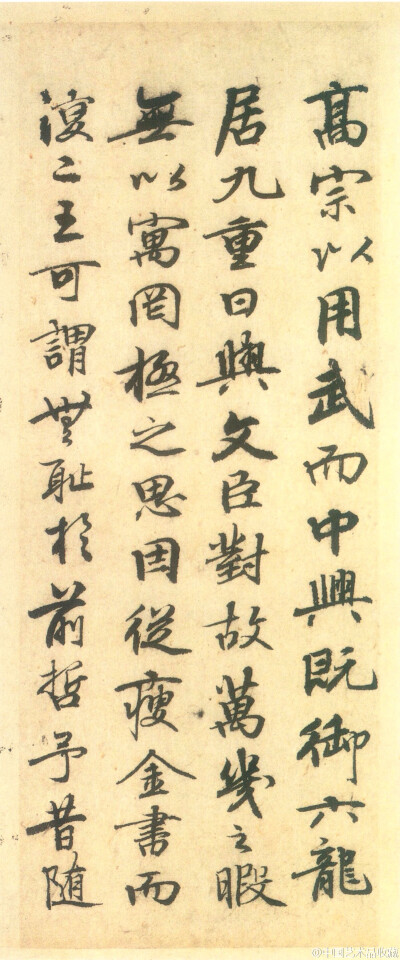 高宗以用武而中興既御六龍
居九重日與文臣對故萬幾之暇
無以寓罔極之思因從瘦金書而
復二王可謂無耻於前哲予昔随
@中国艺术品收藏